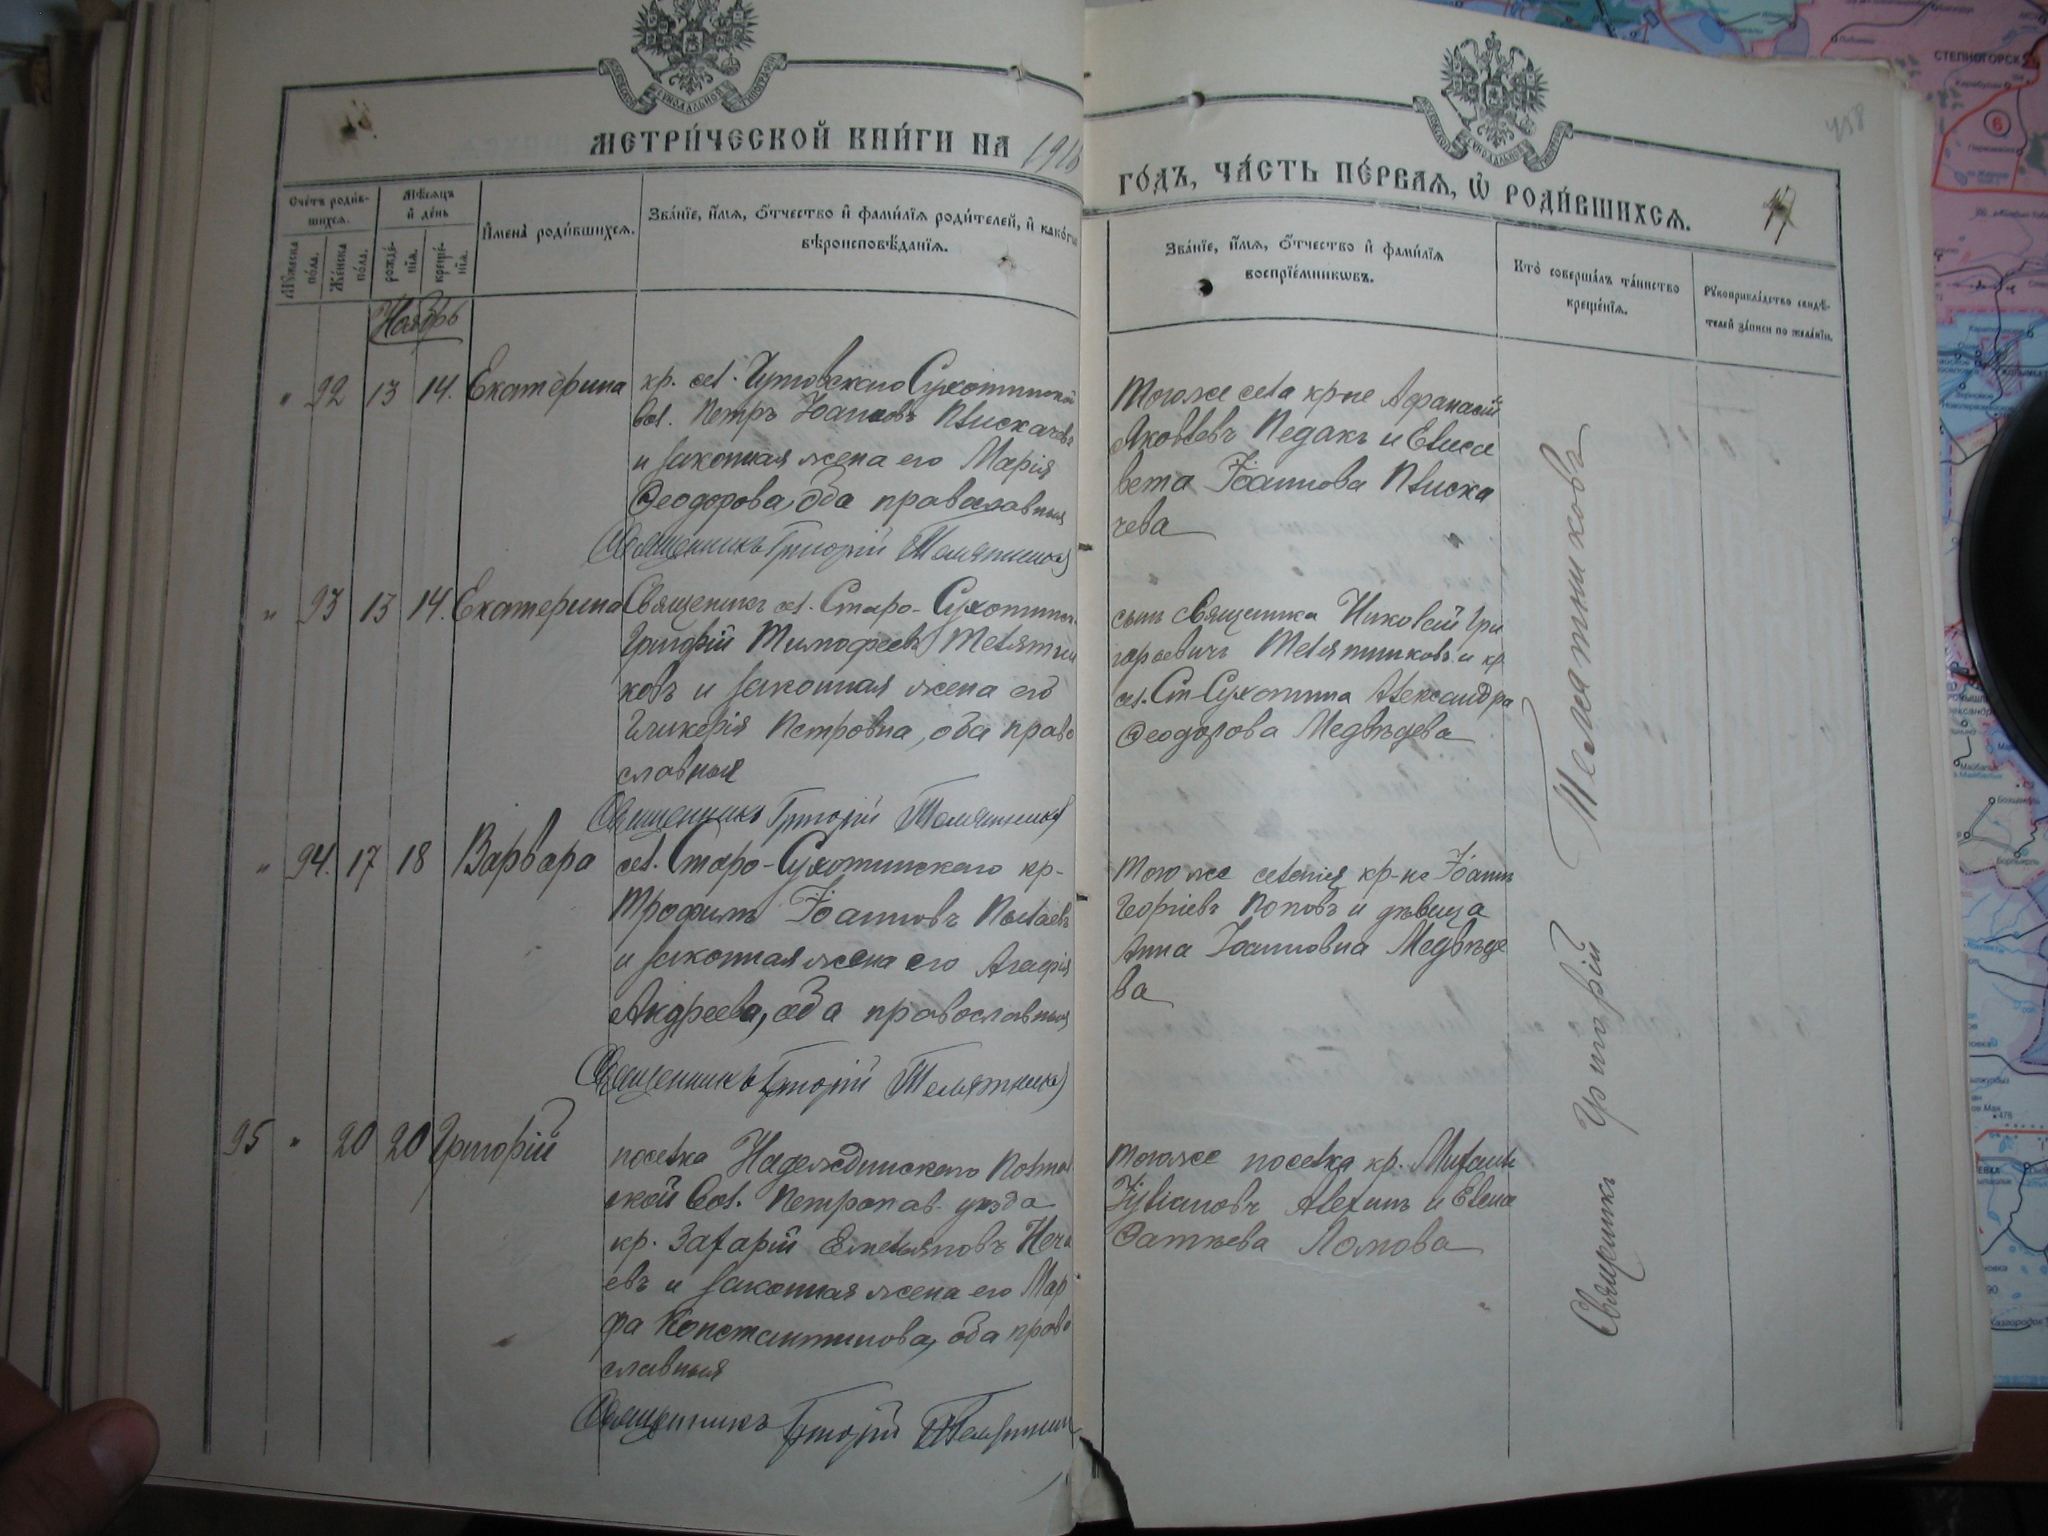 МЕТРИ́ЧЕСКОЙ КНИ́ГИ НА 1916
ГО́ДЪ, ЧА́СТЬ ПЕ́РВАЯ, Ѡ҆ РОДИ́ВШИХСЯ.
458
Сче́тъ роди́в-
шихся.
Мꙋжеска по́ла.
Же́нска по́ла.
Мѣ́сяцъ
и҆ де́нь
рожде́-
нїя.
креще́-
нїя.
И҆мена̀ роди́вшихся.
Зва́нїе, и҆́мя, ѻ҆́тчество и҆ фами́лїя роди́телей, и҆ како́гѡ
вѣроисповѣ́данїя.
Зва́нїе, и҆́мя, ѻ҆́тчество и҆ фами́лїя
воспрїе́мникѡвъ.
Кто̀ соверша́лъ та́инство
креще́нїя.
Рꙋкоприкла́дство свидѣ́-
телей за́писи по жела́нїю.
Ноябрь
" 92 13 14. Екатерина
кр. сел. Чутовскаго Сухотинской
вол. Петръ Іоанновъ Плискачевъ
и законная жена его Марія
Ѳеодорова, оба православныя
Священникъ Григорій Телятников
Тогоже села кр-не Афанасій
Яковлевъ Педакъ и Елиса
вета Іоаннова Плиска
чева
" 93 13 14. Екатерина
Священикъ сел. Старо-Сухотинск.
Григорій Тимофеевъ Телятни
ковъ и законная жена его
Гликерія Петровна, оба право
славныя
Священникъ Григорій Телятников
сынъ священика Николай Гри
горьевичъ Телятниковъ и кр.
сел. Ст-Сухотина Александра
Ѳеодорова Медвѣдева
" 94. 17 18 Варвара
сел. Старо-Сухотинскаго кр-
Трофимъ Іоанновъ Полтаевъ
и законная жена его Агафія
Андреева, оба православныя
Священникъ Григорій Телятников
Тогоже селенія кр-не Іоаннъ
Георгіевъ Поповъ и дѣвица
Анна Іоанновна Медвѣде
ва
95 " 20 20 Григорій
поселка Надеждинскаго Полтав
ской вол. Петропав. уѣзда
кр. Захарій Емельяновъ Неча
евъ и законная жена его Мар
фа Константинова, оба право
славныя
Священникъ Григорій Телятник
Тогоже поселка кр. Михаилъ
Іуліановъ Алехинъ и Елена
Фатѣева Ломова
Священикъ Григорій Телятниковъ
СТЕПНОГОРСК
6